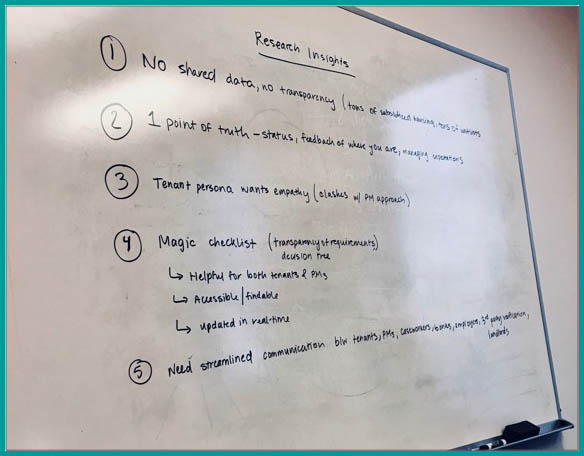 Research Insights
① No shared data, no transparency (tons of subsidized housing, tons of
② 1 point of truth – status, feedback of where you are, managing expectations
③ Tenant persona wants empathy (clashes w/ PM approach)
④ Magic checklist (transparency of requirements)
decision tree
↳ Helpful for both tenants & PMs
↳ Accessible/findable
↳ updated in real-time
⑤ Need streamlined communication b/w tenants, PMs, caseworkers, banks, employers, 3rd party verification,
landlords